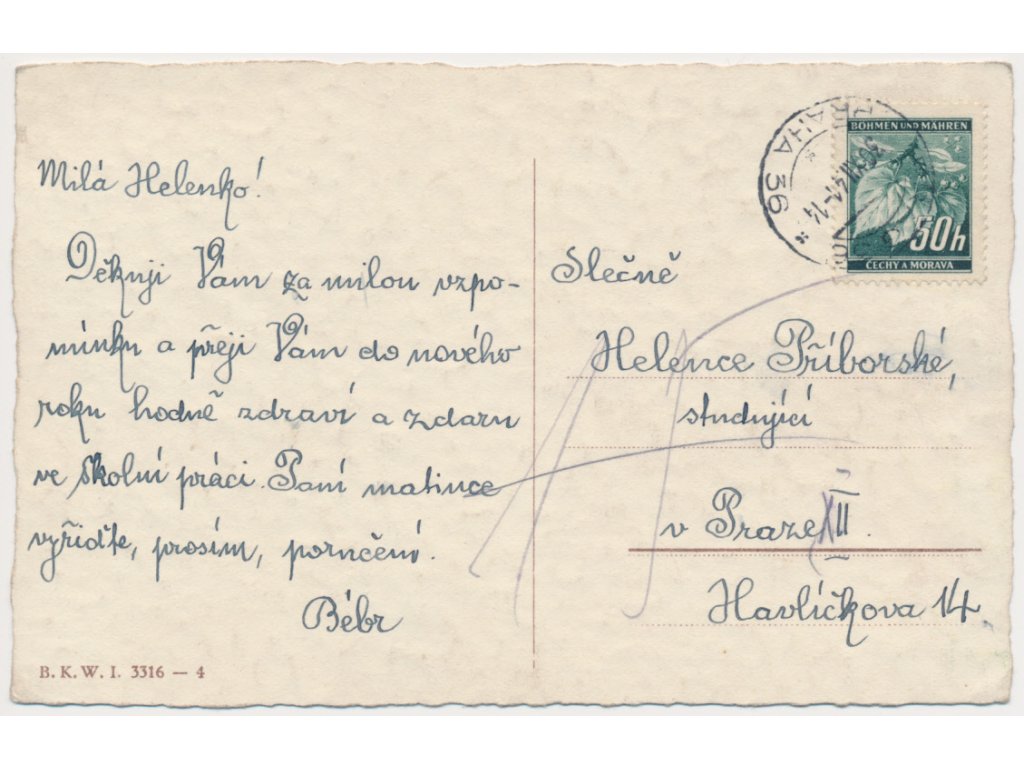 Milá Helenko!
Děkuji Vám za milou vzpo-
mínku a přeji Vám do nového
roku hodně zdraví a zdaru
ve školní práci. Paní matince
vyřiďte, prosím, poručení.
Bébr
B. K. W. I. 3316 — 4
PRAHA 36
BÖHMEN UND MÄHREN
50h
ČECHY A MORAVA
Slečně
Helence Příborské,
studující
v Praze II.
Havlíčkova 14.